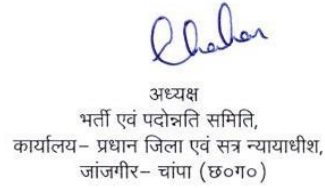 अध्यक्ष
भर्ती एवं पदोन्नति समिति,
कार्यालय– प्रधान जिला एवं सत्र न्यायाधीश,
जांजगीर– चांपा (छ०ग०)